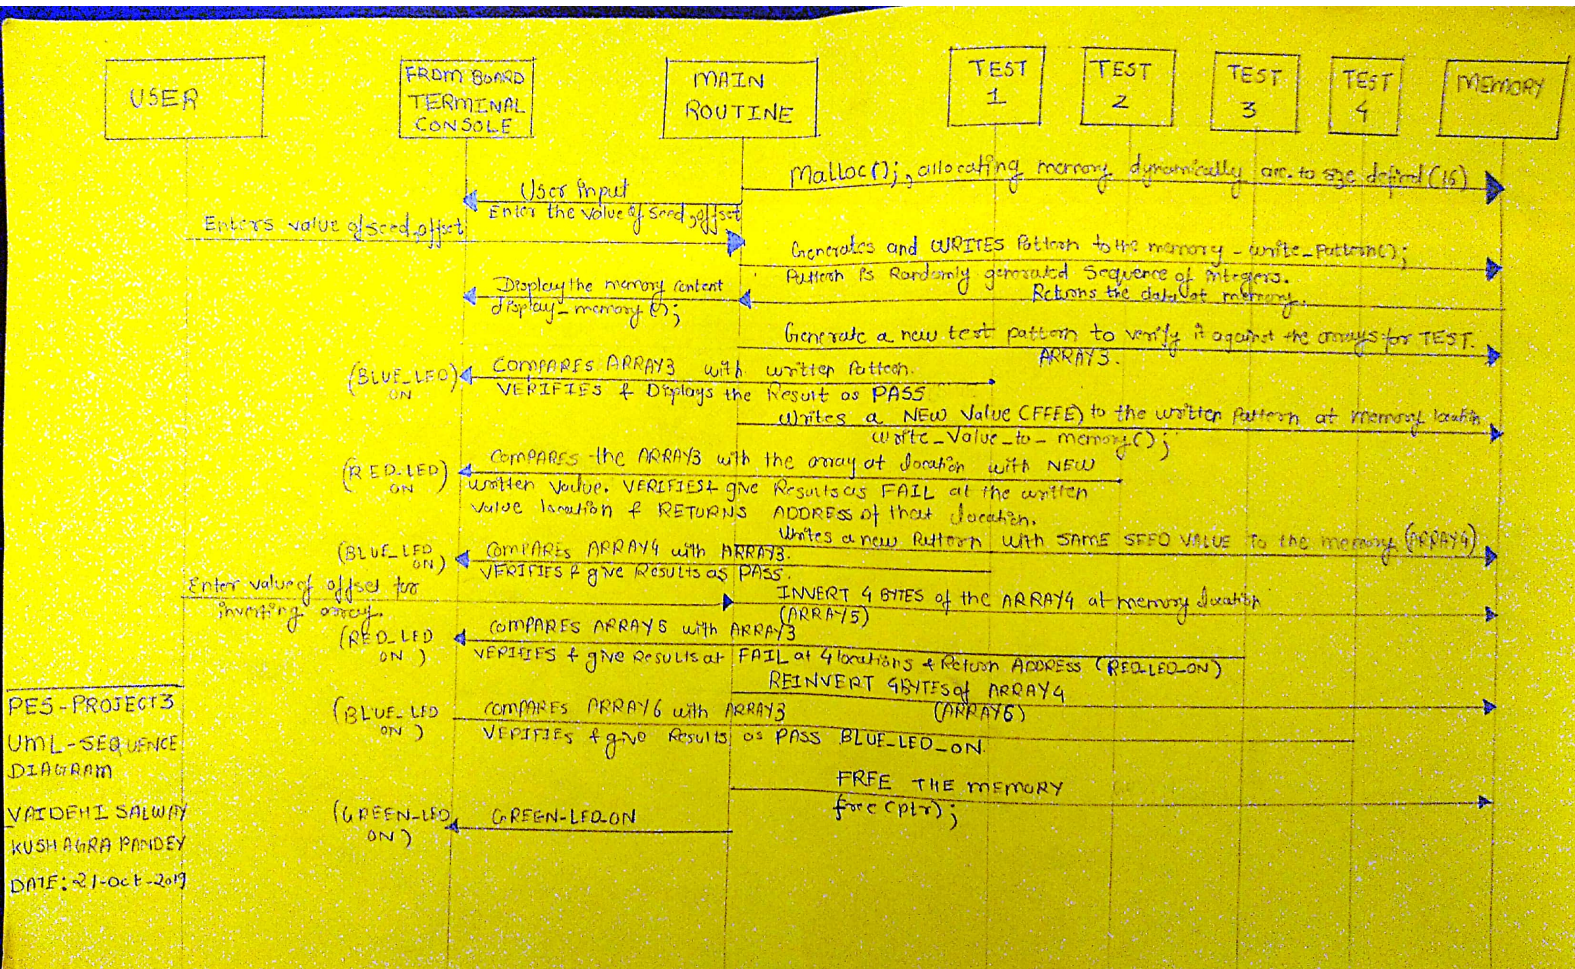 USER
FRDM BOARD
TERMINAL
CONSOLE
MAIN
ROUTINE
TEST
1
TEST
2
TEST
3
TEST
4
MEMORY
Malloc(); , allocating memory dynamically acc. to size defined (16)
User Input
Enter the value of seed, offset
Enters value of seed, offset
Generates and WRITES Pattern to the memory - write_Pattern();
Pattern is Randomly generated Sequence of integers.
Returns the data at memory.
Display the memory content
display_memory();
Generate a new test pattern to verify it against the arrays for TEST.
ARRAY3.
(BLUE_LED
ON
COMPARES ARRAY3 with written Pattern.
VERIFIES & Displays the Result as PASS
Writes a NEW Value (FFEE) to the written Pattern at memory location
write_Value_to_memory();
(RED-LED
ON)
COMPARES the ARRAY3 with the array at location with NEW
written value. VERIFIES & give Results as FAIL at the written
value location & RETURNS ADDRESS of that location.
Writes a new Pattern with SAME SEED VALUE to the memory (ARRAY4)
(BLUE_LED
ON)
COMPARES ARRAY4 with ARRAY3.
VERIFIES & give Results as PASS.
Enter value of offset for
inverting array.
INVERT 4 BYTES of the ARRAY4 at memory location
(ARRAY5)
(RED_LED
ON )
COMPARES ARRAY5 with ARRAY3
VERIFIES & give Results at FAIL at 4 locations & Return ADDRESS (RED_LED_ON)
REINVERT 4BYTES of ARRAY4
(ARRAY6)
(BLUE_LED
ON )
COMPARES ARRAY6 with ARRAY3
VERIFIES & give Results as PASS BLUE_LED_ON.
FREE THE MEMORY
free(ptr);
(GREEN-LED
ON )
GREEN-LED_ON
PES-PROJECT3
UML-SEQUENCE
DIAGRAM
VAIDEHI SALWAY
KUSHAGRA PANDEY
DATE: 21-Oct-2019